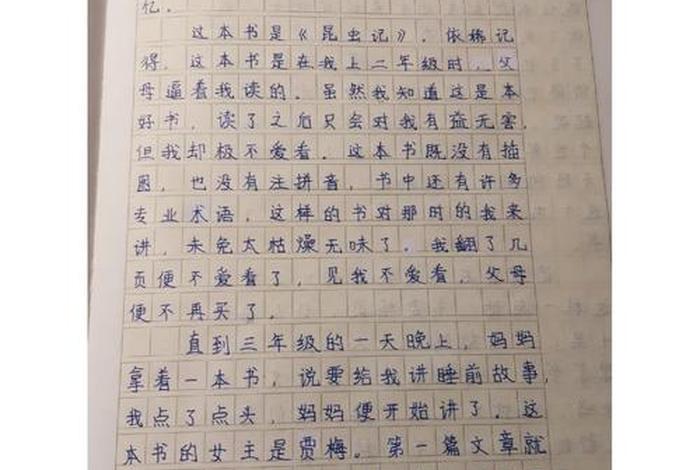 忆.
这本书是《昆虫记》，依稀记
得，这本书是在我上二年级时，父
母逼着我读的．虽然我知道这是本
好书，读了之后只会对我有益无害，
但我却极不爱看．这本书既没有插
图，也没有注拼音，书中还有许多
专业术语，这样的书对那时的我来
讲，未免太枯燥无味了．我翻了几
页便不爱看了，见我不爱看，父母
便不再买了．
直到三年级的一天晚上，妈妈
拿着一本书，说要给我讲睡前故事，
我点了点头，妈妈便开始讲了．这
本书的女主是贾梅。第一篇文章就